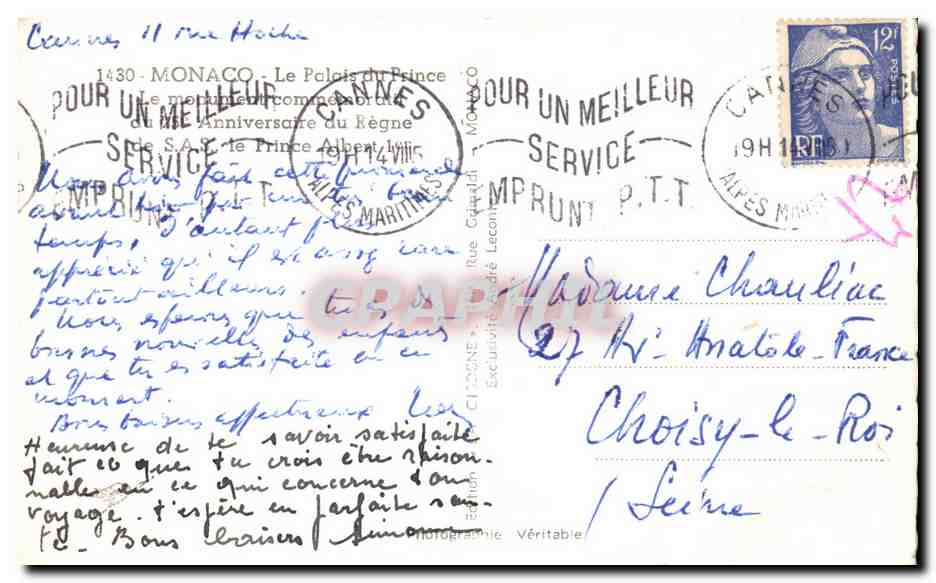 Cannes 11 rue Hoche
1430 - MONACO - Le Palais du Prince
Le monument commémoratif
du 25e Anniversaire du Règne
de S.A.S. le Prince Albert 1er
POUR UN MEILLEUR
SERVICE
EMPRUNT P.T.T.
CANNES
19H 14 VIII 5
ALPES MARITIMES
POUR UN MEILLEUR
SERVICE
EMPRUNT P.T.T.
CANNES
19H 14 51
ALPES MARIT
12F
POSTES
RF
Nous avons fait cette promenade
avant hier par un très beau
temps, d'autant plus
apprécié qu'il est assez rare
partout ailleurs.
Nous espérons que tu as de
bonnes nouvelles des enfants
et que tu es satisfaite en ce
moment.
Bons baisers affectueux
Heureuse de te savoir satisfaite
fait ce que tu crois être raison-
nable en ce qui concerne ton
voyage. t'espère en parfaite san-
té - Bons baisers Simone
Edition " CIGOGNE " Rue Grimaldi - MONACO
Exclusivité André Leconte
Photographie Véritable
Madame Chauliac
27 Av. Anatole-France
Choisy-le-Roi
/ Seine
CRAPHIL